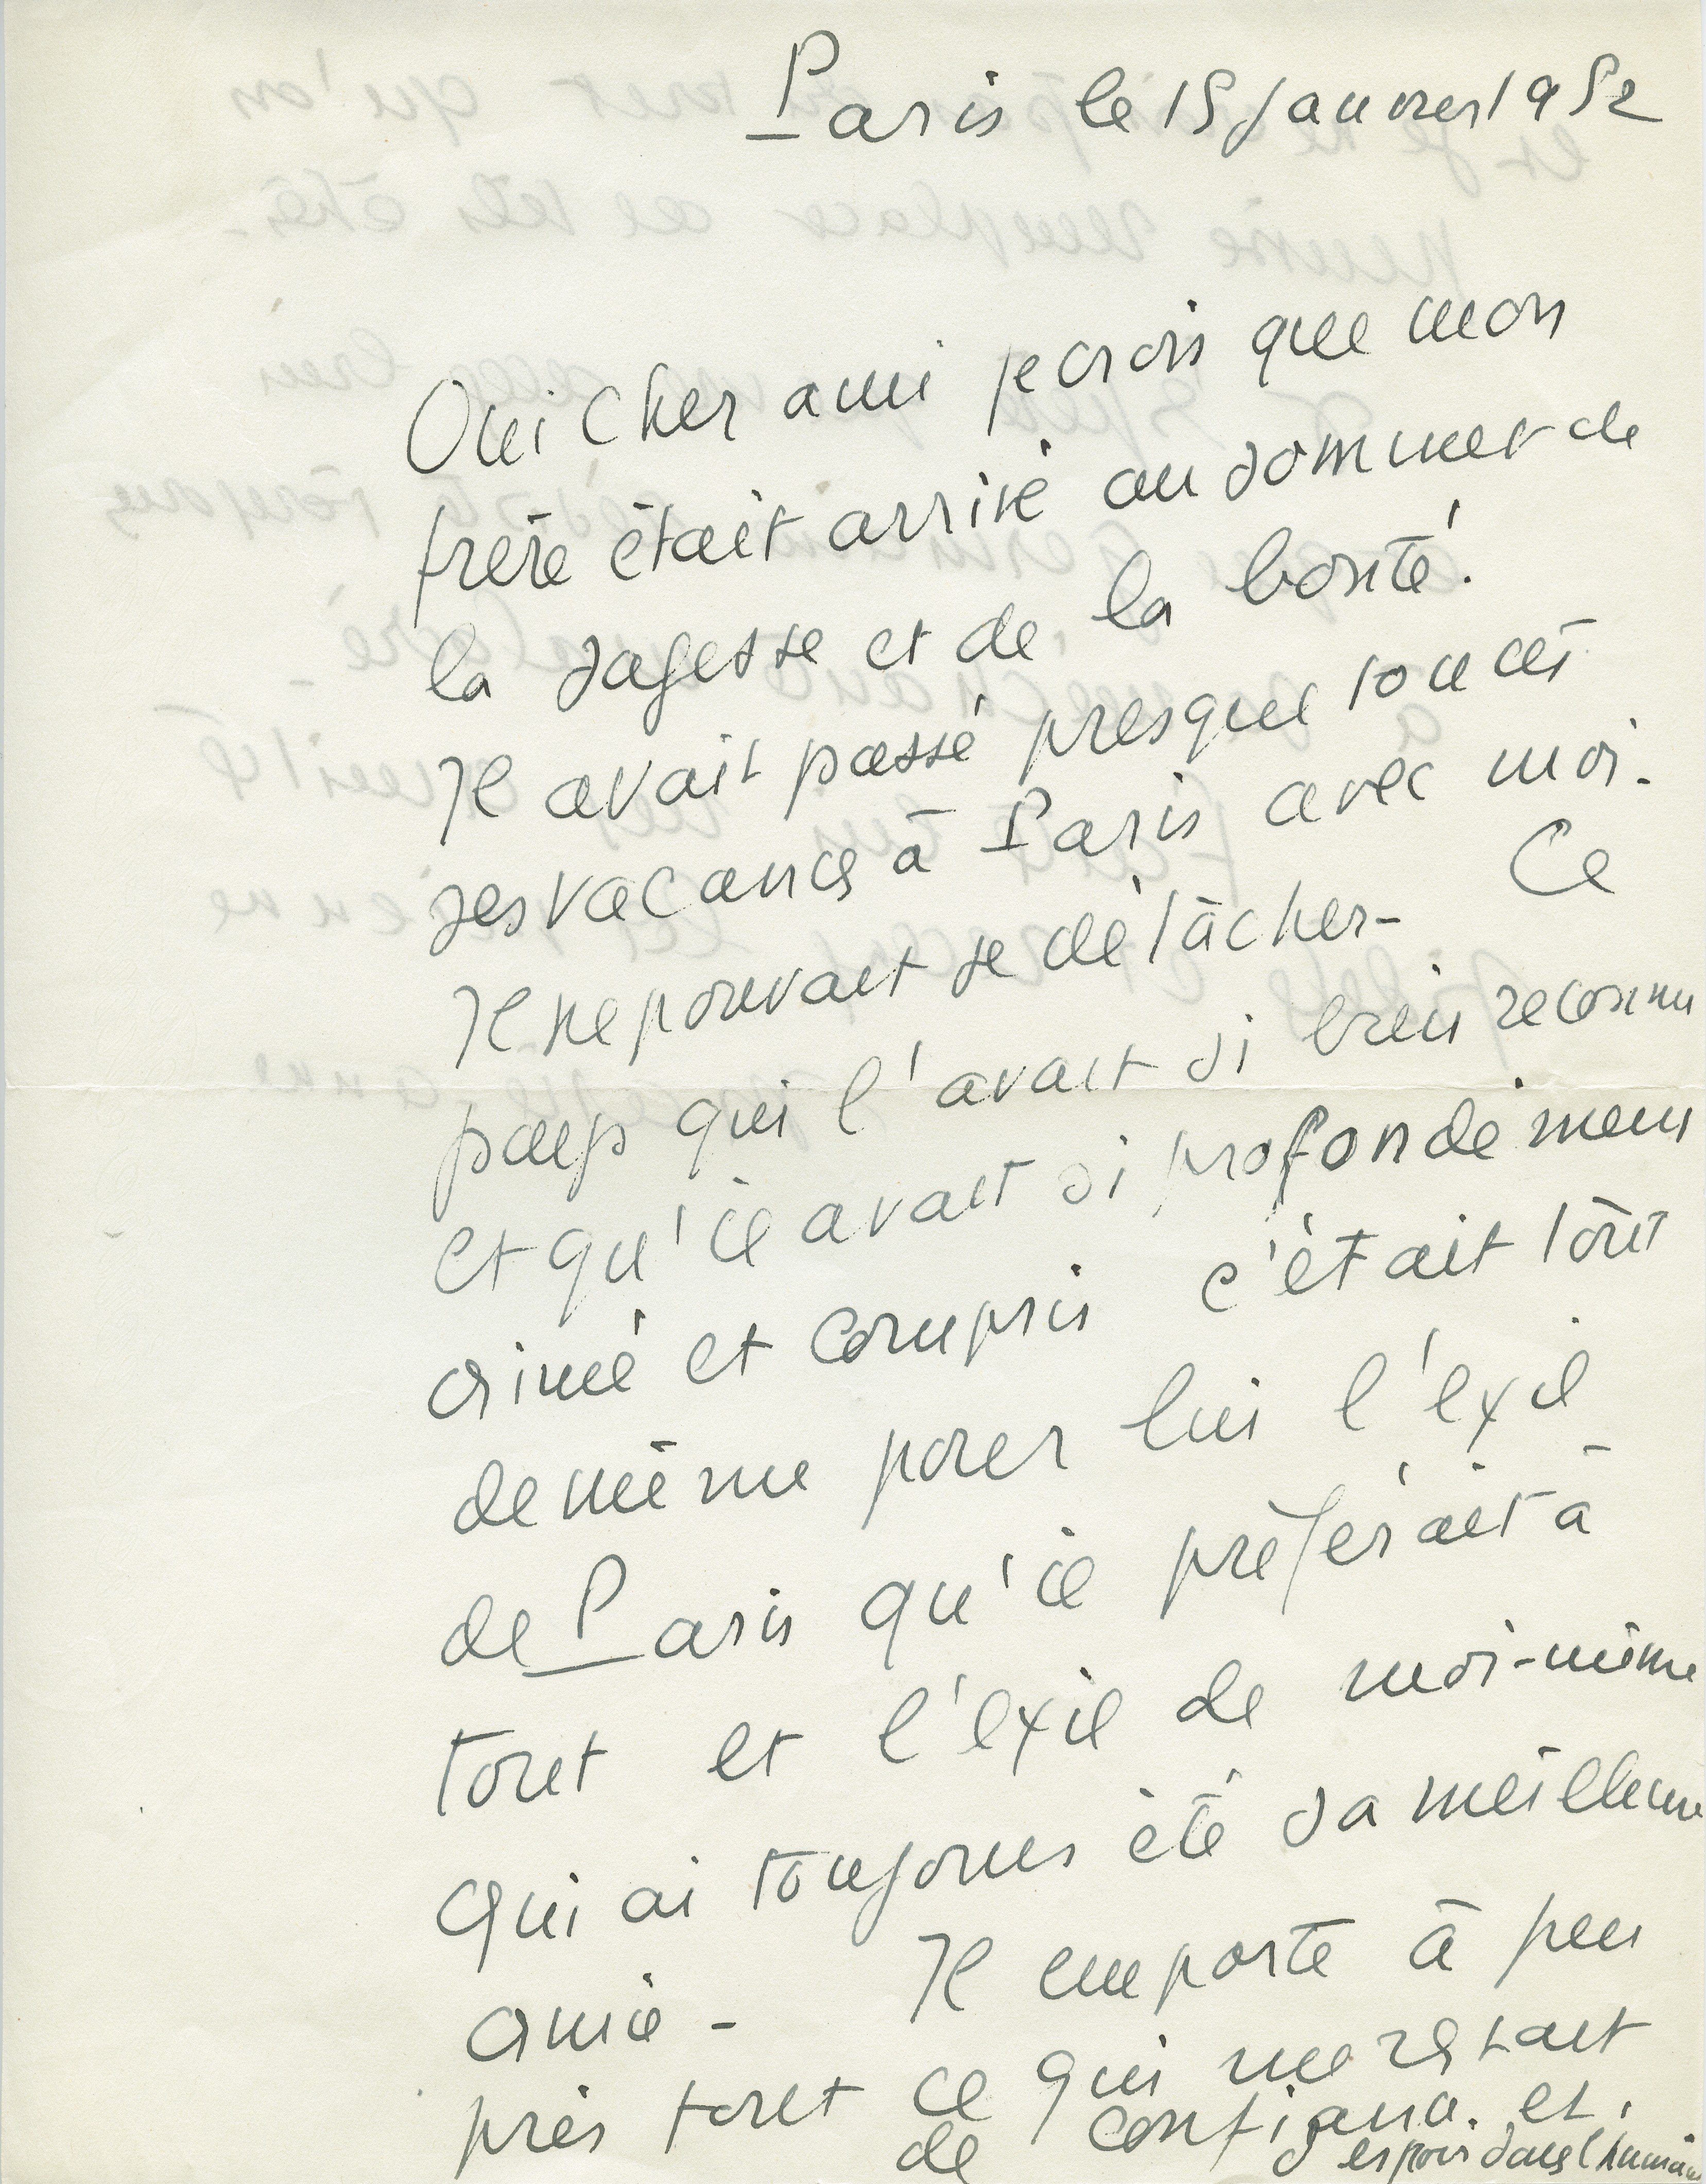 Paris le 15 janvier 1952
Oui cher ami je crois que mon
frère était arrivé au sommet de
la sagesse et de la bonté.
Il avait passé presque tout cet
ses vacances à Paris avec moi.
Il ne pouvait se détâcher- Ce
pays qui l'avait si bien reconnu
et qu'il avait si profondément
aimé et compris c'était tout
de même pour lui l'éxil
de Paris qu'il préférait à
tout et l'éxil de moi-même
qui ai toujours été sa meilleure
amie - Il emporte à peu
près tout ce qui me restait
de confiance et
d'espoir dans l'humain